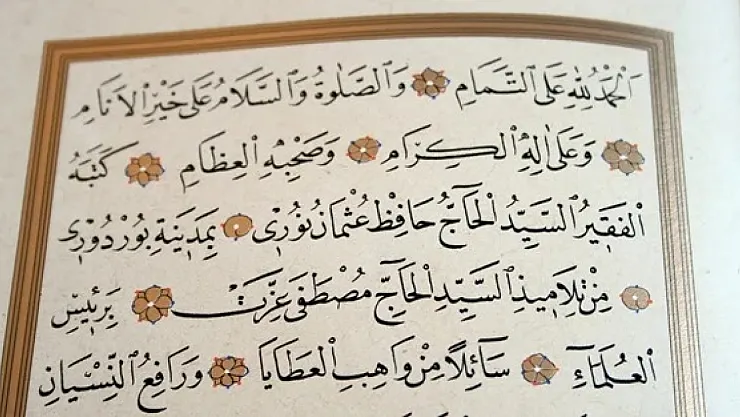 اَلْحَمْدُ لِلّٰهِ عَلَى التَّمَامِ وَالصَّلٰوةُ وَالسَّلَامُ عَلٰى خَيْرِ الْاَنَامِ
وَعَلٰى اٰلِهِ الْكِرَامِ وَصَحْبِهِ الْعِظَامِ كَتَبَهُ
الْفَقِيرُ السَّيِّدُ الْحَاجُّ حَافِظْ عُثْمَانْ نُورِى بِمَدِينَةِ بُورْدُورِى
مِنْ تَلَامِيذِ السَّيِّدِ الْحَاجِّ مُصْطَفٰى عِزَّتْ بَرِئِيسِ
الْعُلَمَاءِ سَائِلًا مِنْ وَاهِبِ الْعَطَايَا وَرَافِعِ النِّسْيَانِ